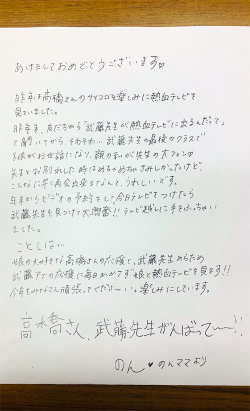 あけましておめでとうございます。
昨年は高橋さんのサイコロを楽しみに熱血テレビを
見ていました。
昨年末、友だちから「武藤先生が熱血テレビに出るんだって」
と聞いてから、そわそわ…武藤先生の最後のクラスで
娘がお世話になり、親の私が先生の大ファン
先生とお別れした時はめちゃめちゃさみしかったけど、
こんなに早く再会出来るなんて、うれしいです。
年末からビデオの予約をして、今日テレビをつけたら
武藤先生を見つけて大興奮!!テレビ越しに手をふっちゃい
ました。
ことしは…
娘の大好きな高橋さんの応援と、武藤先生あらため
武藤アナの応援に毎日かかさず娘と熱血テレビを見ます!!
今年もみなさん頑張ってくださーい。楽しみにしています。
高橋さん、武藤先生がんばってー!!
のん♥のんママより